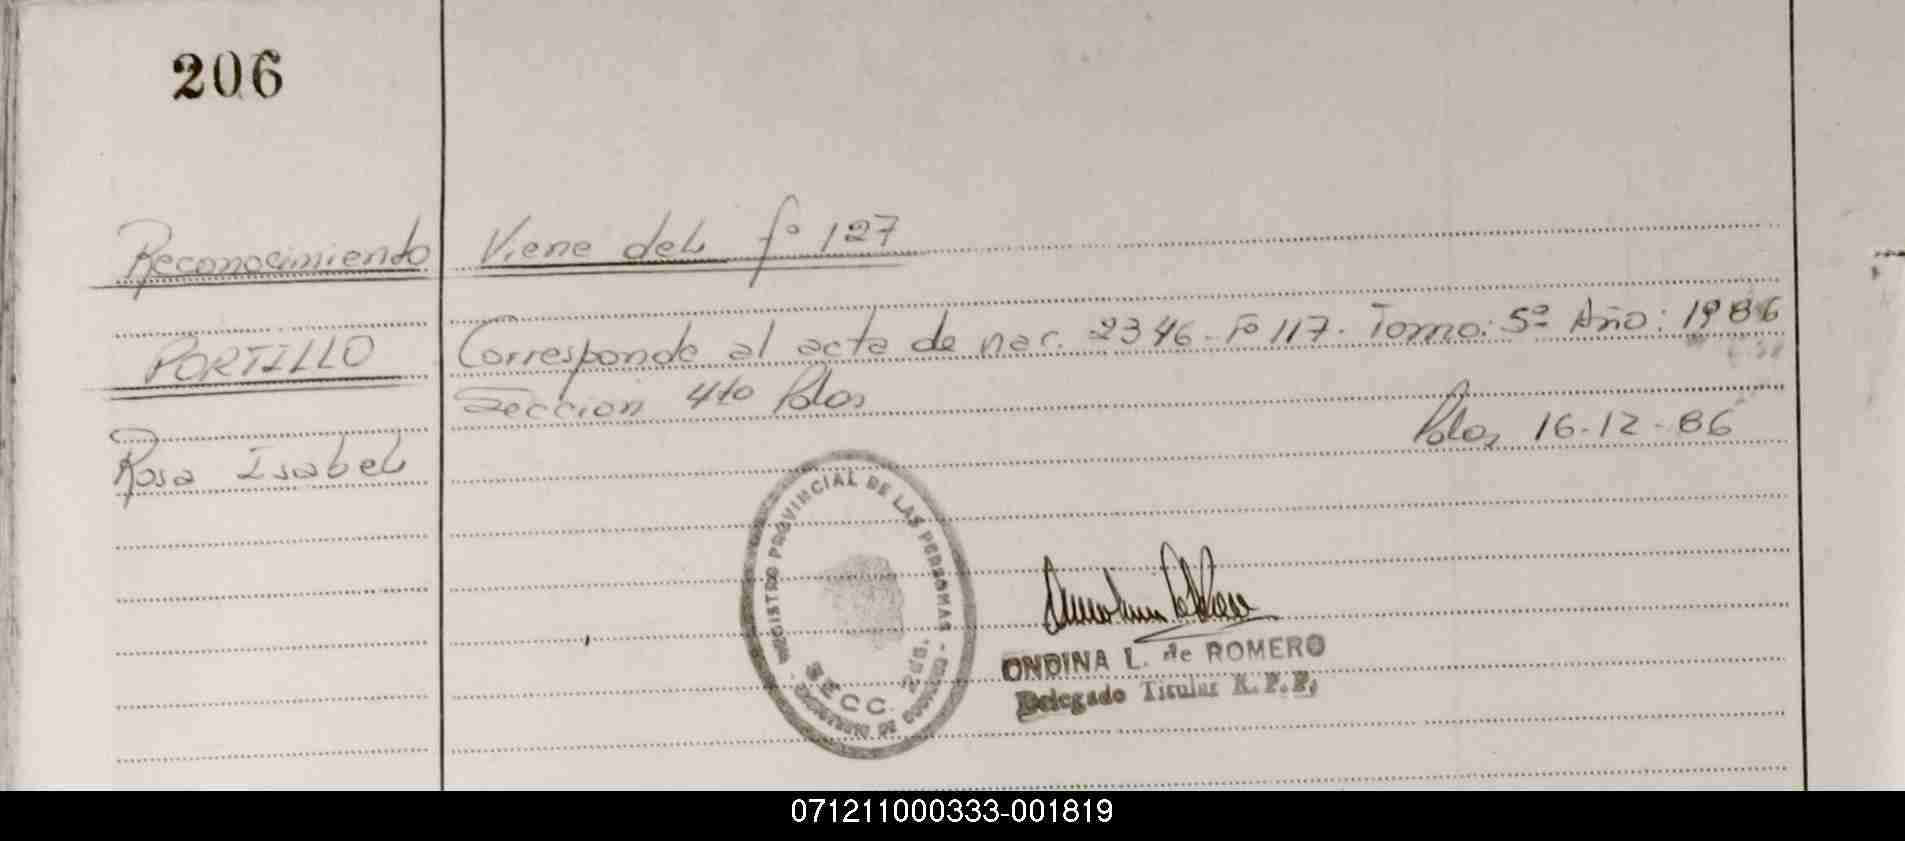 206
Reconocimiento Viene del fº 127
PORTILLO Corresponde al acta de nac. 2346-Fº 117. Tomo: 5º Año: 1986
Sección 4to Pdas
Rosa Isabel Pdas 16-12-86
REGISTRO PROVINCIAL DE LAS PERSONAS
SECC.
ONDINA L. de ROMERO
Delegado Titular R.P.P.
071211000333-001819